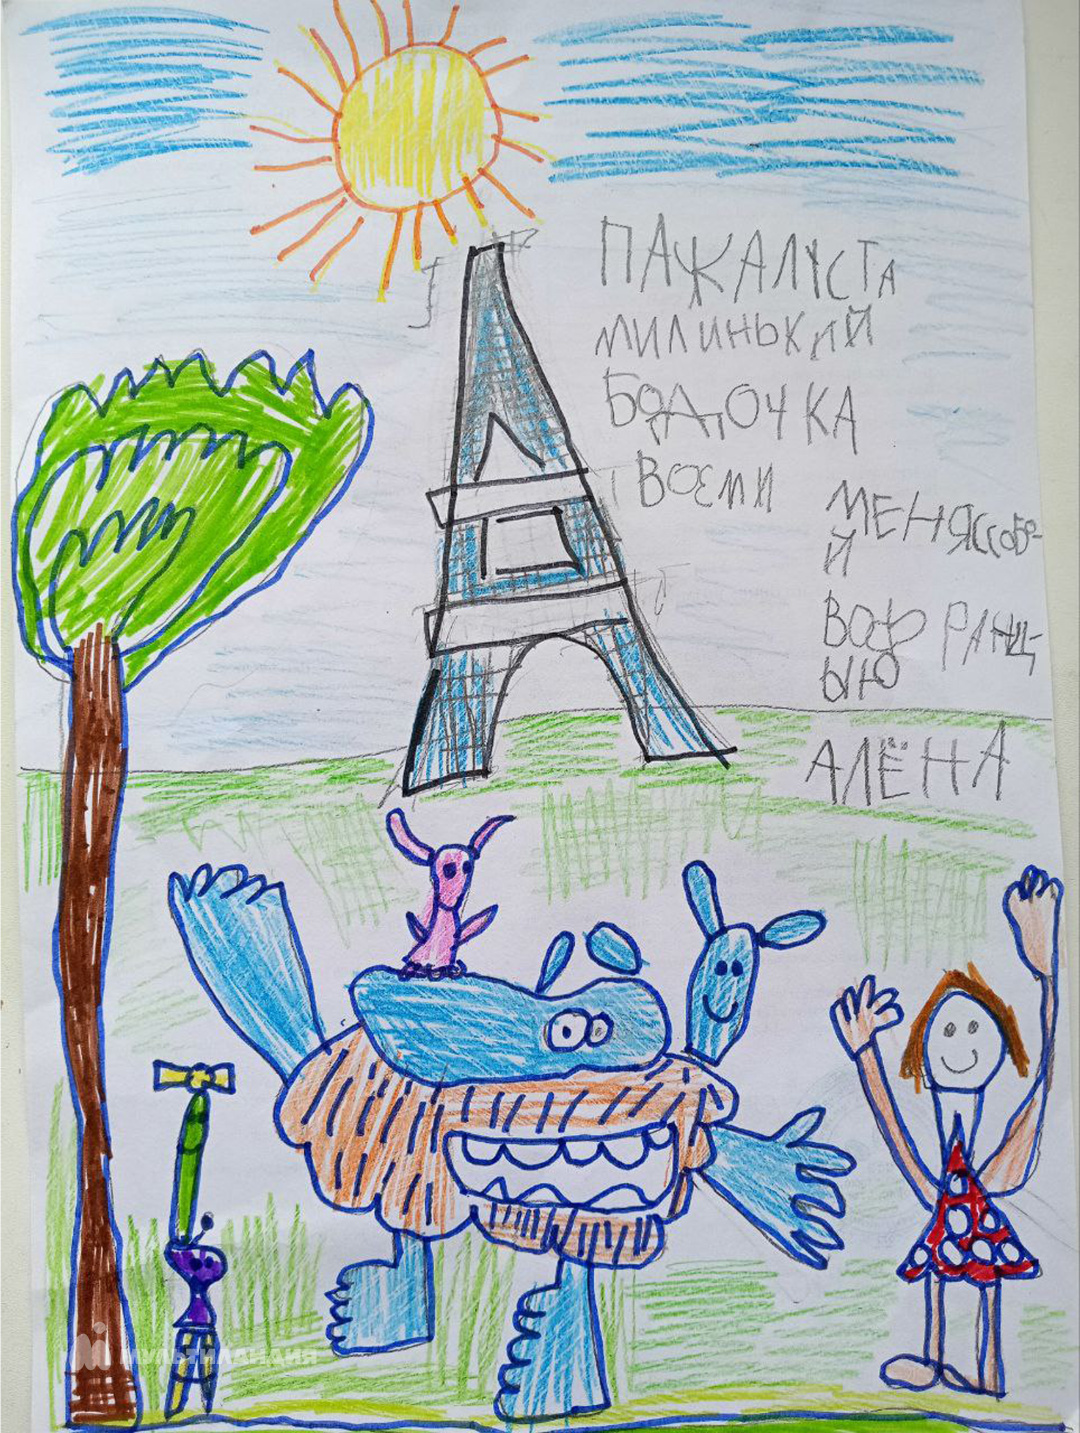 ПАЖАЛУСТА
МИЛИНЬКИЙ
БОДДОЧКА
ВОЄМИ
МЕНЯССОБО-
Й
ВОФРАНЦ-
ЫЮ
АЛЁНА
МУЛЬТИЛАНДИЯ